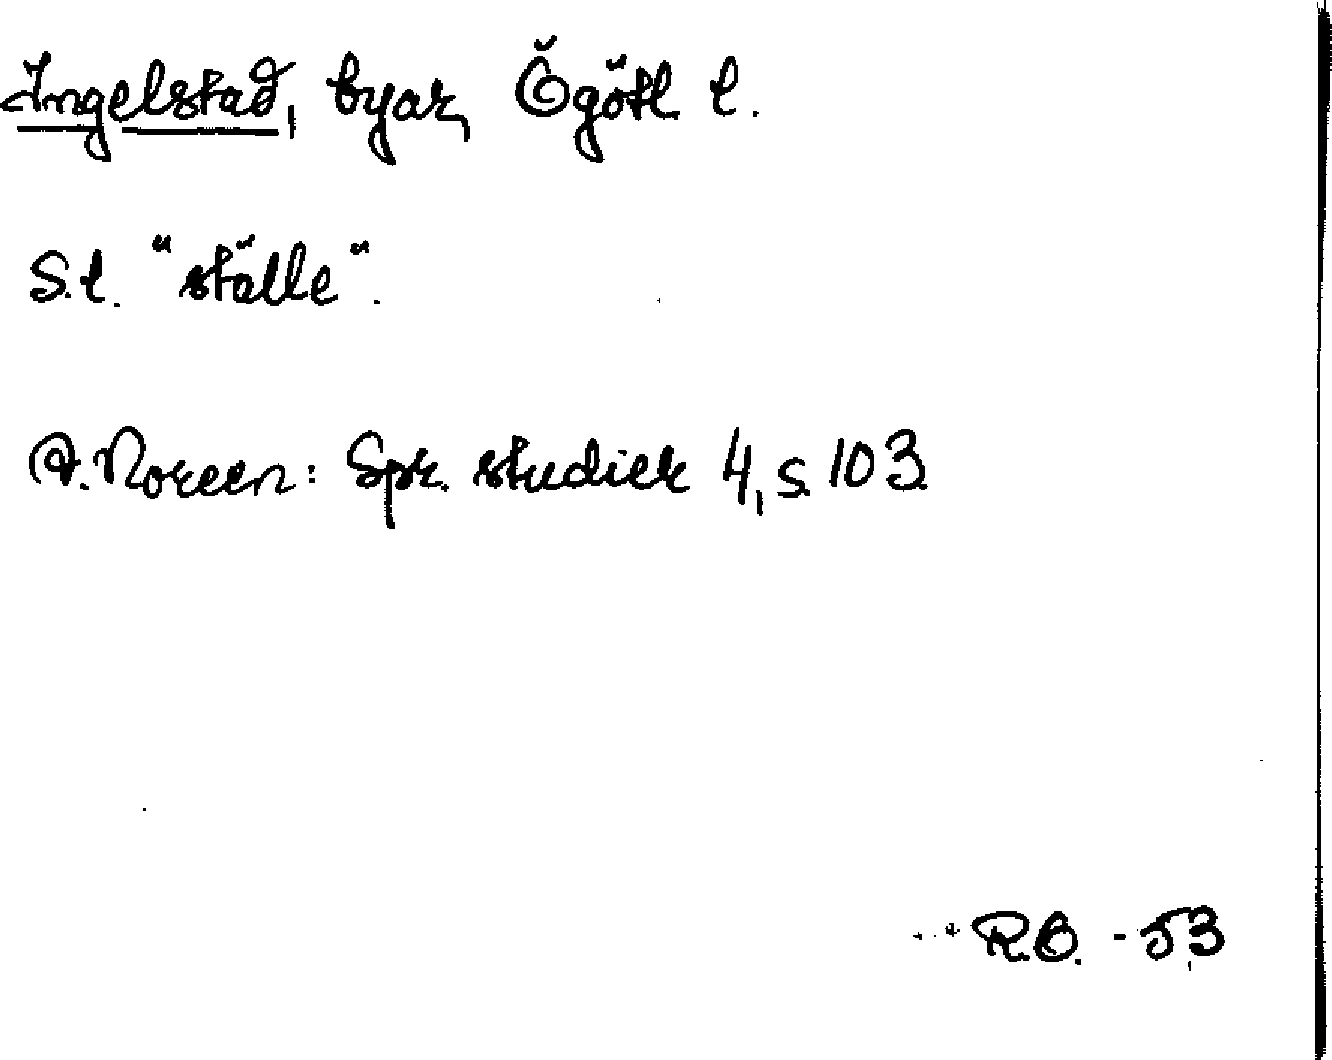 Ingelstad, byar, Ögötl l.
S.l. "ställe".
A. Noreen: Spr. studier 4, s. 103.
R.O. -53